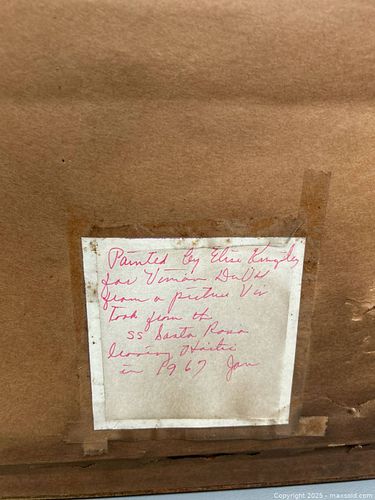 Painted by Elise Kingsley
for Vivian
from a picture Viv
took from the
SS Santa Rosa
leaving Haiti
in 1967 Jan
Copyright 2025 - maxsold.com